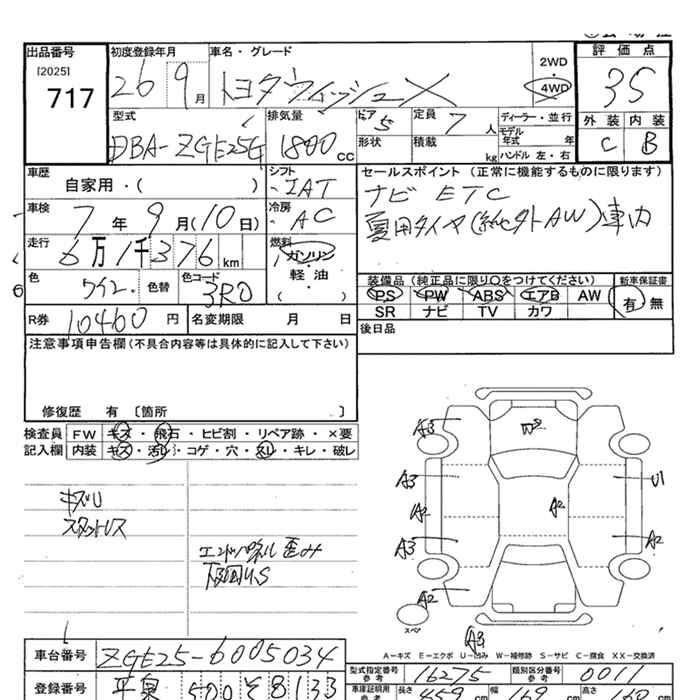 出品番号
[2025]
717
初度登録年月
26 9月
車名・グレード
トヨタウィッシュ X
2WD
・
4WD
評価点
35
外装 内装
C B
型式
DBA-ZGE25G
排気量
1800 cc
ドア
5
定員
7 人
形状
積載
kg
ディーラー・並行
モデル年式 年
ハンドル 左・右
車歴
自家用・( )
シフト
IAT
車検
7年9月(10日)
冷房
AC
走行
6万1千376 km
燃料
ガソリン
軽・油
( ・ )
色
ワイン
色替
色コード
3R0
R券
10460 円
名変期限 月 日
セールスポイント (正常に機能するものに限ります)
ナビ ETC
夏用タイヤ(純外AW)車内
装備品 (純正品に限り○をつけてください)
PS PW ABS エアB AW
SR ナビ TV カワ
新車保証書
有・無
後日品
注意事項申告欄(不具合内容等は具体的に記入して下さい)
修復歴 有 〔箇所 〕
検査員記入欄
FW キズ・飛石・ヒビ割・リペア跡・×要
内装 キズ・汚れ・コゲ・穴・スレ・キレ・破レ
キズU
スタットレス
エンドパネル歪み
下回りS
A3
A3
A2
A3
A2
A2
U1
A2
A3
スペア
A-キズ E-エクボ U-凹み W-補修跡 S-サビ C-腐食 XX-交換済
車台番号
ZGE25-6005034
型式指定番号 参考
16275
類別区分番号 参考
0011
登録番号
平泉 500 そ 8133
車庫証明用 参考
長さ 459 cm
幅 169 cm
高さ 160 cm